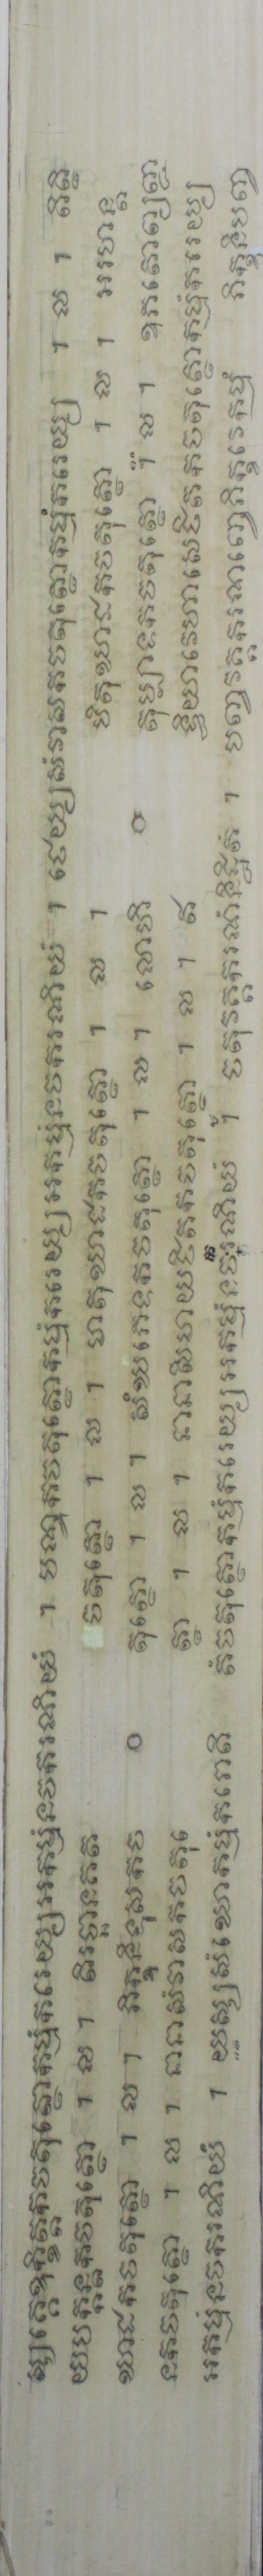 ស្សគ្គេឧក្ខិត្តកចតុត្ថោកម្មំករេយ្យអកម្មំនចករណិយំ ។ បណ្ឌកចតុត្ថោកម្មំករេយ្យអកម្មំនចករណិយំ ។ ថេយ្យសំវាសកចតុត្ថោកម្មំករេយ្យ ។ ល ។ តិត្ថិ
យបក្កន្តកចតុត្ថោ ។ ល ។ តិរច្ឆានគត ចតុត្ថោ ។ ល ។ មាតុឃាដកចតុត្ថោ ។ ល ។ បិតុឃាដកចតុត្ថោ ។ ល ។ អរហន្ត
ឃាដកចតុត្ថោ ។ ល ។ ភិក្ខុនិទុសកច ០ តុត្ថោ ។ ល ។ សំឃភេទកចតុត្ថោ ។ ល ។ លោហិ ០ តុប្បាទកចតុត្ថោ ។ ល ។ ឧភតោព្យញ្ជ
នកចតុត្ថោ ។ ល ។ នានាសំវាសកចតុត្ ថោ ។ ល ។ នានាសិមាយឋិតកចតុត្ថោ ។ ល ។ ឥ ទ្ធិយាវេហាសេឋិតកចតុត្ថោកម្មំករេយ្យ
អកម្មំនចករណិយំ ។ យស្សសំឃោកម្មំករោតិ តំចតុត្ថោកម្មំករេយ្យអកម្មំនចករណិយំ ។ ចតុវគ្គករណំនិដ្ឋិតំ ។ បញ្ចវគ្គករណញ្ចេភិក្ខវេកម្មំ ភិក្ខុនិបញ្ច